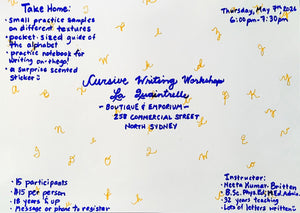 Take Home:
• small practice samples
on different textures
• pocket-sized guide of
the alphabet
• practice notebook for
writing on-the-go!
• a surprise scented
sticker
Thursday, May 7th 2026
6:00pm-7:30pm
Cursive Writing Workshop
La Quaintrelle
- BOUTIQUE & EMPORIUM -
258 COMMERCIAL STREET
NORTH SYDNEY
• 15 participants
• $15 per person
• 18 years & up
• Message or phone to register
Instructor:
• Neeta Kumar-Britten
B.Sc. Phys.Ed; M.Ed. Admin.
• 32 years teaching
• Lots of letters written!